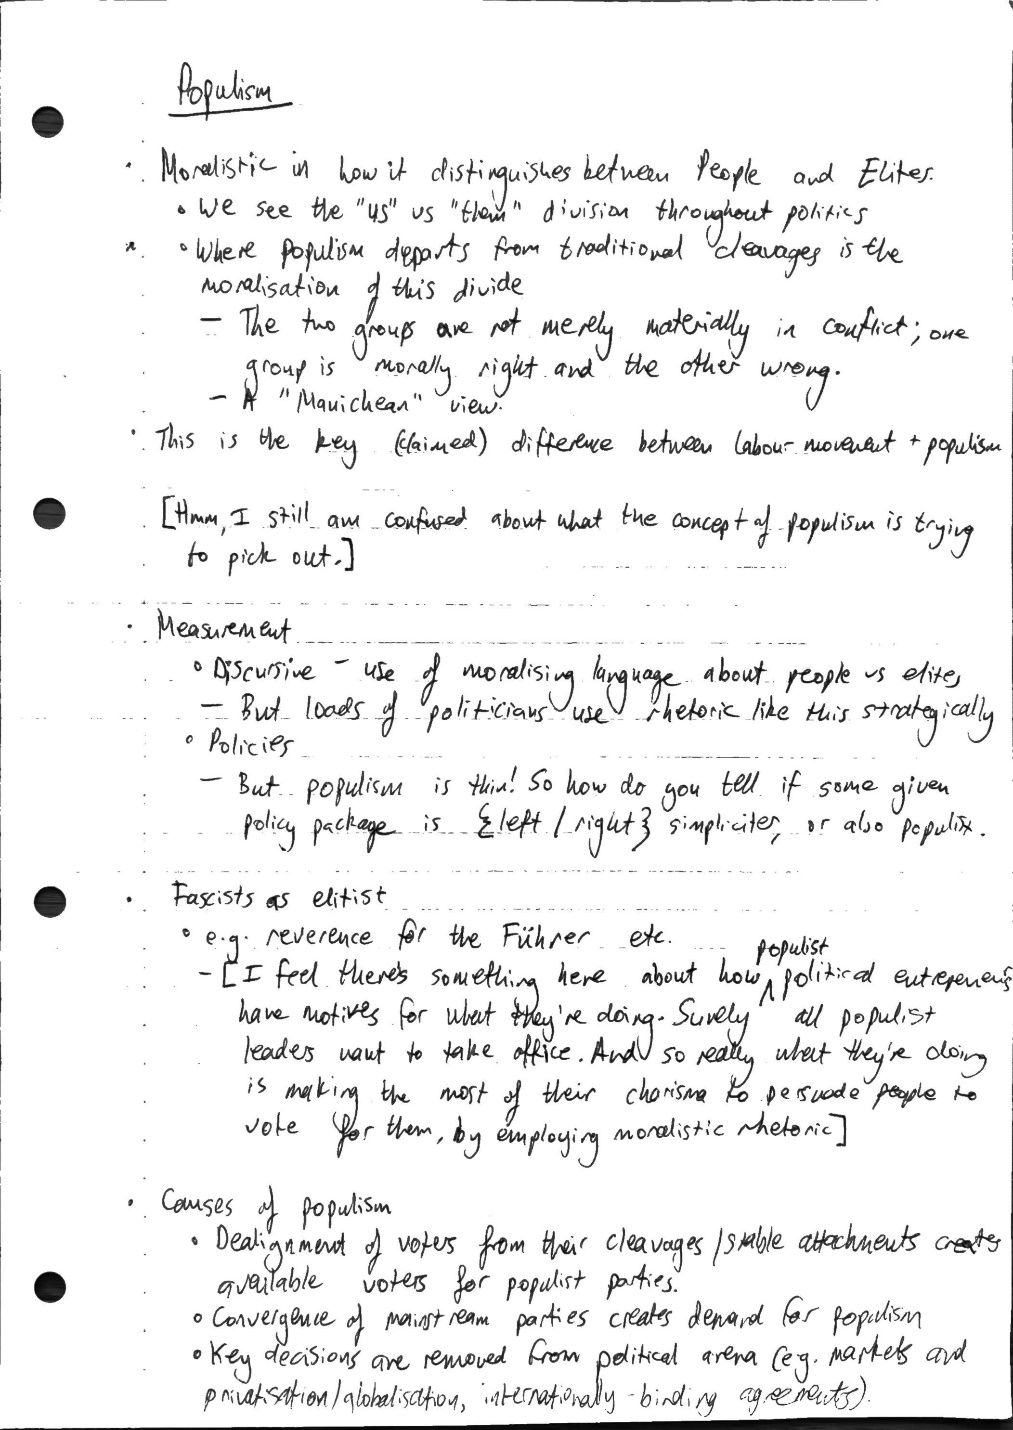 Populism
• Moralistic in how it distinguishes between People and Elites.
• We see the "us" vs "them" division throughout politics
• Where populism departs from traditional cleavages is the
moralisation of this divide
– The two groups are not merely materially in conflict; one
group is morally right and the other wrong.
– A "Manichean" view.
• This is the key (claimed) difference between labour movement + populism
[Hmm, I still am confused about what the concept of populism is trying
to pick out.]
• Measurement
• Discursive – use of moralising language about people vs elites
– But loads of politicians use rhetoric like this strategically
• Policies
– But populism is thin! So how do you tell if some given
policy package is {left / right} simpliciter, or also populist.
• Fascists as elitist
• e.g. reverence for the Führer etc.
– [I feel there's something here about how populist political entrepreneurs
have motives for what they're doing. Surely all populist
leaders want to take office. And so really what they're doing
is making the most of their charisma to persuade people to
vote for them, by employing moralistic rhetoric]
• Causes of populism
• Dealignment of voters from their cleavages / stable attachments creates
available voters for populist parties.
• Convergence of mainstream parties creates demand for populism
• Key decisions are removed from political arena (e.g. markets and
privatisation/globalisation, internationally-binding agreements).